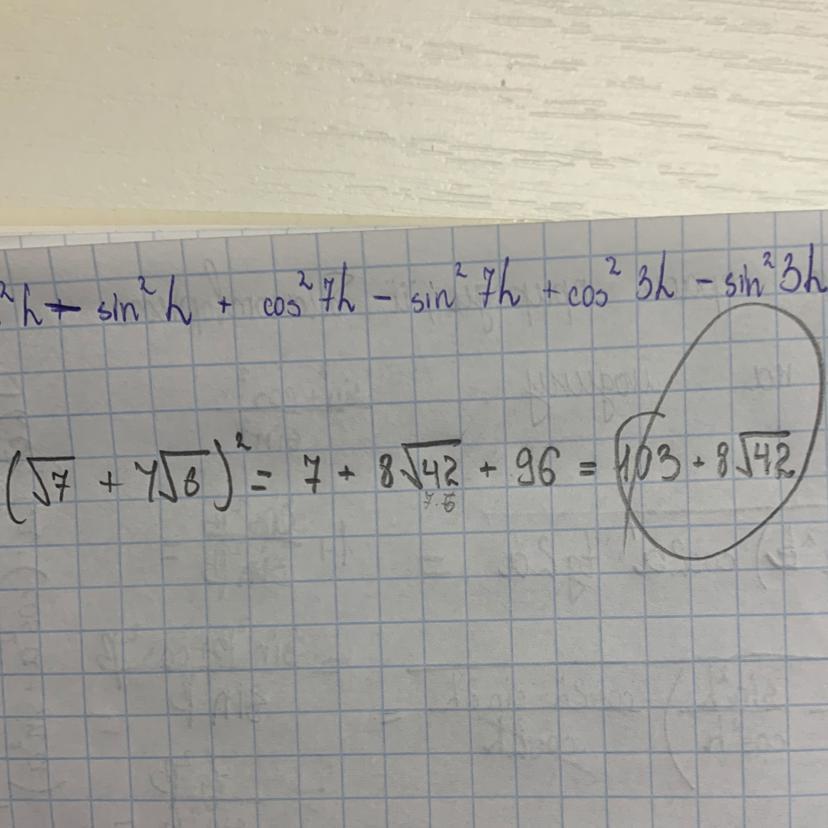 ²h - sin²h + cos²7h - sin²7h + cos²3h - sin²3h
(√7 + 4√6)² = 7 + 8√42 + 96 = 103 + 8√42
7·6